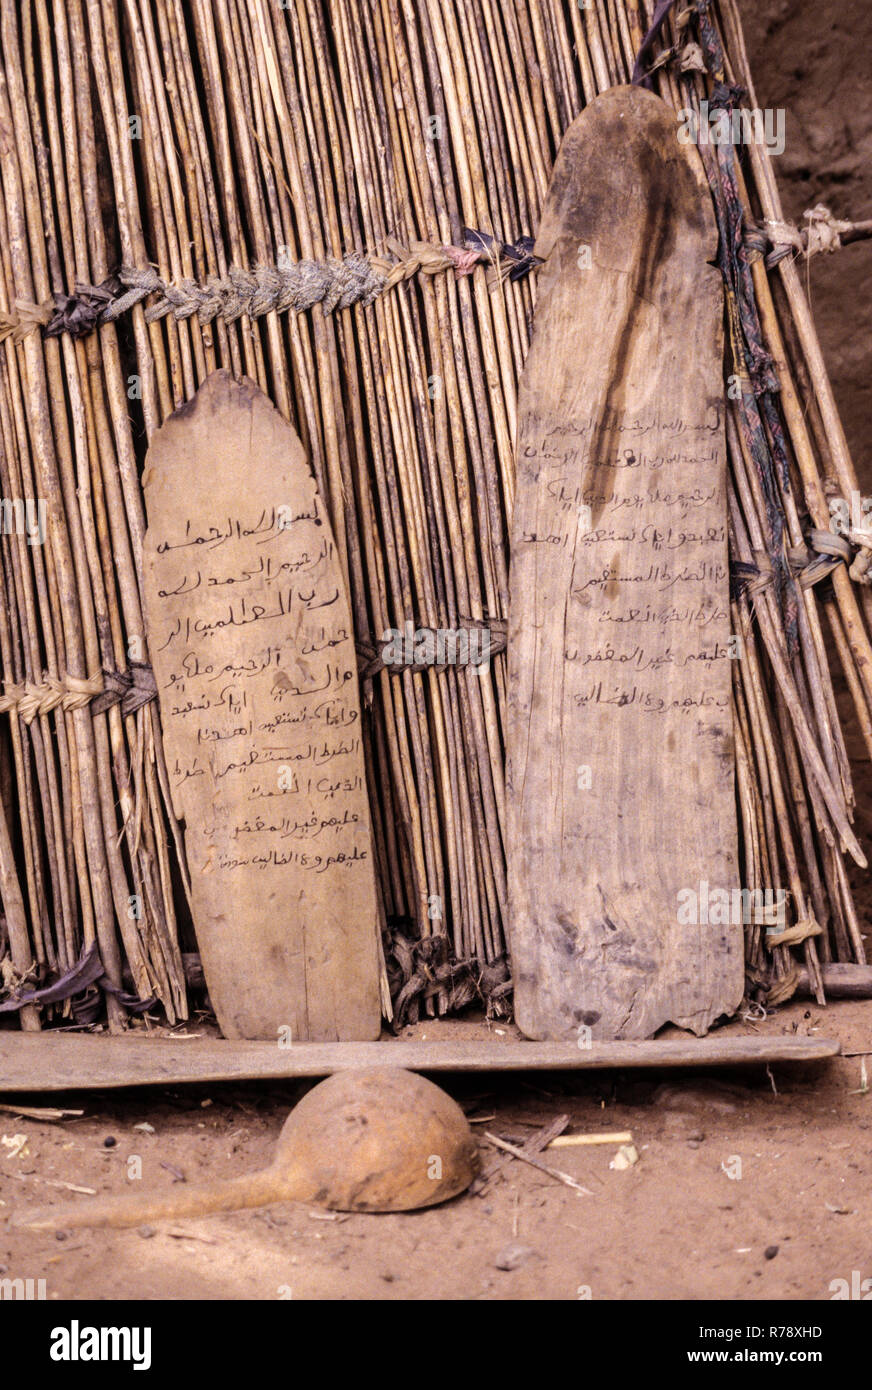 بسم الله الرحمان
الرحيم الحمد لله
رب العلمين الر
حمان الرحيم ملك يو
م الدين اياك نعبد
واياك نستعين اهدنا
الصرط المستقيم صرط
الذين انعمت
عليهم غير المغضوب
عليهم ولا الضالين
بسم الله الرحمان الرحيم
الحمد لله رب العلمين الرحمان
الرحيم ملك يوم الدين اياك
نعبد واياك نستعين اهد
نا الصرط المستقيم
صرط الذين انعمت
عليهم غير المغضو
ب عليهم ولا الضالين
alamy
Image ID: R78XHD
www.alamy.com